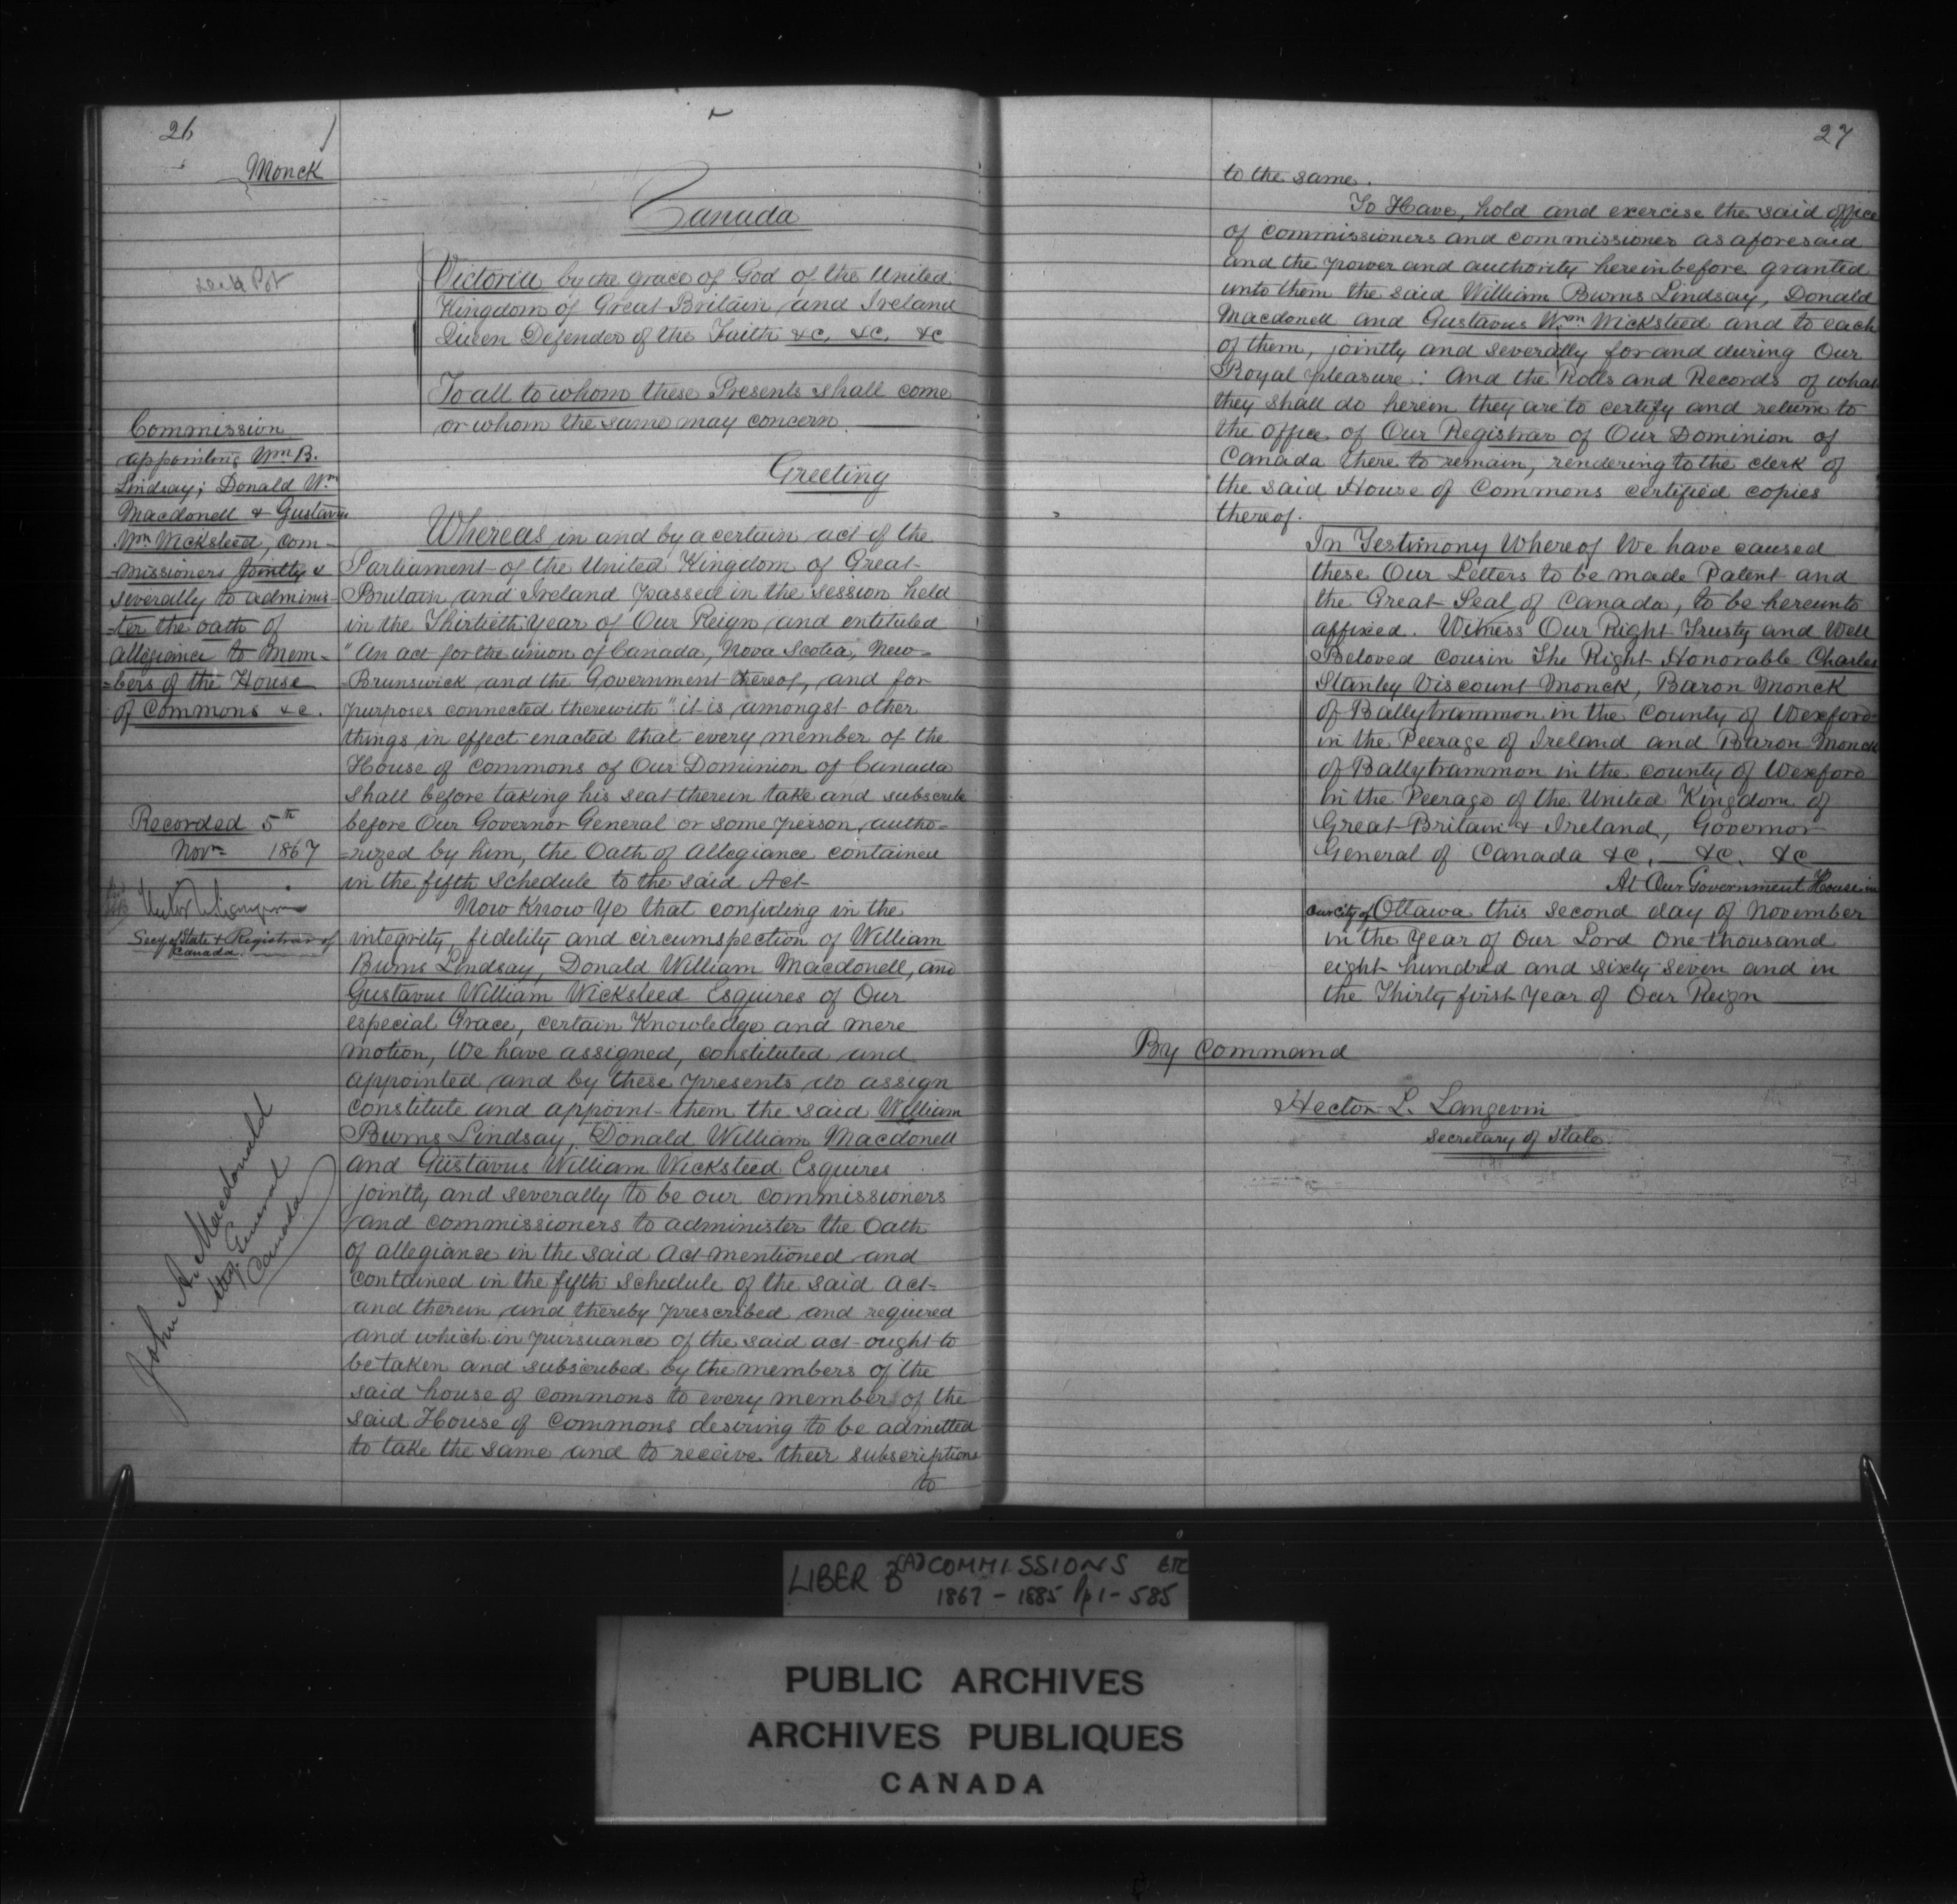 26
Monck
Canada
Victoria by the grace of God of the United
Kingdom of Great Britain and Ireland
Queen Defender of the Faith &c, &c, &c
To all to whom these Presents shall come
or whom the same may concern
Greeting
Commission
appointing Wm B.
Lindsay; Donald Wm
Macdonell & Gustavus
Wm Wicksteed, com-
-missioners jointly &
severally to adminis-
-ter the oath of
allegiance to mem-
-bers of the House
of Commons &c.
Recorded 5th
Novr 1867
Secy of State & Registrar of
Canada
John A. Macdonald
Atty. General
Canada
Whereas in and by a certain act of the
Parliament of the United Kingdom of Great
Britain and Ireland passed in the session held
in the Thirtieth year of Our Reign and entituled
"An act for the union of Canada, Nova Scotia, New-
-Brunswick and the Government thereof, and for
purposes connected therewith" it is amongst other
things in effect enacted that every member of the
House of Commons of Our Dominion of Canada
shall before taking his seat therein take and subscribe
before Our Governor General or some person autho-
-rized by him, the Oath of Allegiance contained
in the fifth schedule to the said Act
Now Know Ye that confiding in the
integrity, fidelity and circumspection of William
Burns Lindsay, Donald William Macdonell, and
Gustavus William Wicksteed Esquires of Our
especial Grace, certain Knowledge and mere
motion, We have assigned, constituted and
appointed and by these presents do assign
constitute and appoint them the said William
Burns Lindsay, Donald William Macdonell
and Gustavus William Wicksteed Esquires
jointly and severally to be our commissioners
and commissioners to administer the Oath
of allegiance in the said Act mentioned and
contained in the fifth schedule of the said act-
and therein and thereby prescribed and required
and which in pursuance of the said act ought to
be taken and subscribed by the members of the
said house of commons to every member of the
said House of Commons desiring to be admitted
to take the same and to receive their subscriptions
to
27
to the same.
To Have, hold and exercise the said office
of commissioners and commissioner as aforesaid
and the power and authority hereinbefore granted
unto them the said William Burns Lindsay, Donald
Macdonell and Gustavus Wm Wicksteed and to each
of them, jointly and severally for and during Our
Royal pleasure: And the Rolls and Records of what
they shall do herein they are to certify and return to
the office of Our Registrar of Our Dominion of
Canada there to remain, rendering to the clerk of
the said House of Commons certified copies
thereof.
In Testimony Whereof We have caused
these Our Letters to be made Patent and
the Great Seal of Canada, to be hereunto
affixed. Witness Our Right Trusty and Well
Beloved Cousin The Right Honorable Charles
Stanley Viscount Monck, Baron Monck
of Ballytrammon in the County of Wexford
in the Peerage of Ireland and Baron Monck
of Ballytrammon in the county of Wexford
in the Peerage of the United Kingdom of
Great Britain & Ireland, Governor
General of Canada &c, &c. &c
At Our Government House in
our city of Ottawa this second day of November
in the Year of Our Lord One thousand
eight hundred and sixty seven and in
the Thirty first Year of Our Reign
By Command
Hector L. Langevin
Secretary of State.
LIBER B (A) COMMISSIONS ETC
1867 - 1885 Pp 1 - 585
PUBLIC ARCHIVES
ARCHIVES PUBLIQUES
CANADA